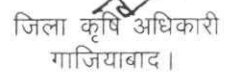 जिला कृषि अधिकारी
गाजियाबाद।